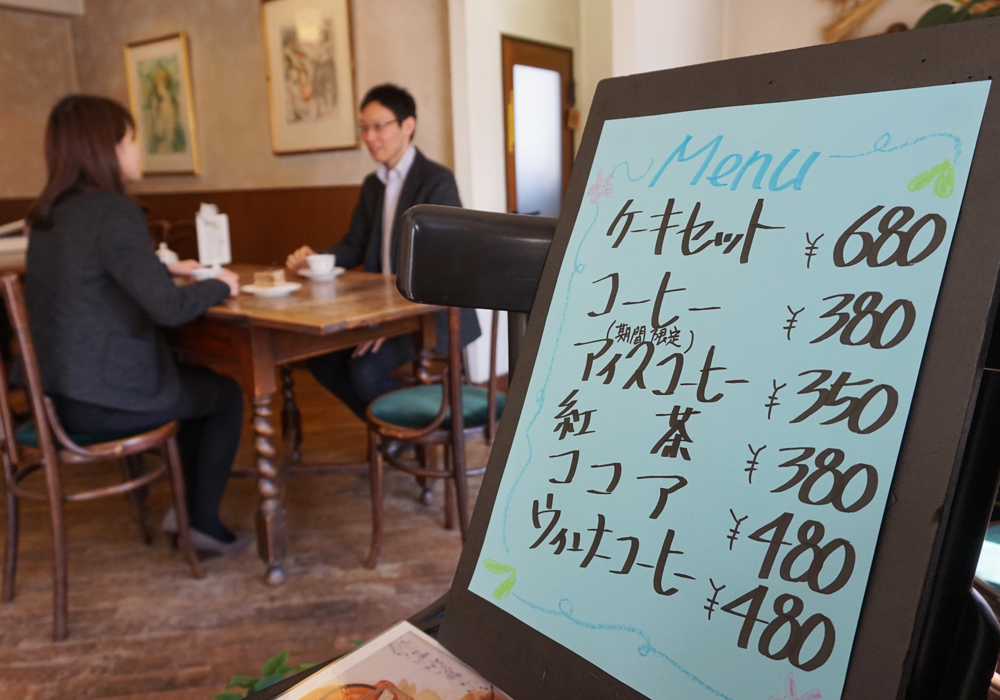 Menu
ケーキセット ¥680
コーヒー ¥380
(期間限定)
アイスコーヒー ¥350
紅 茶 ¥380
ココア ¥480
ウィンナーコーヒー ¥480